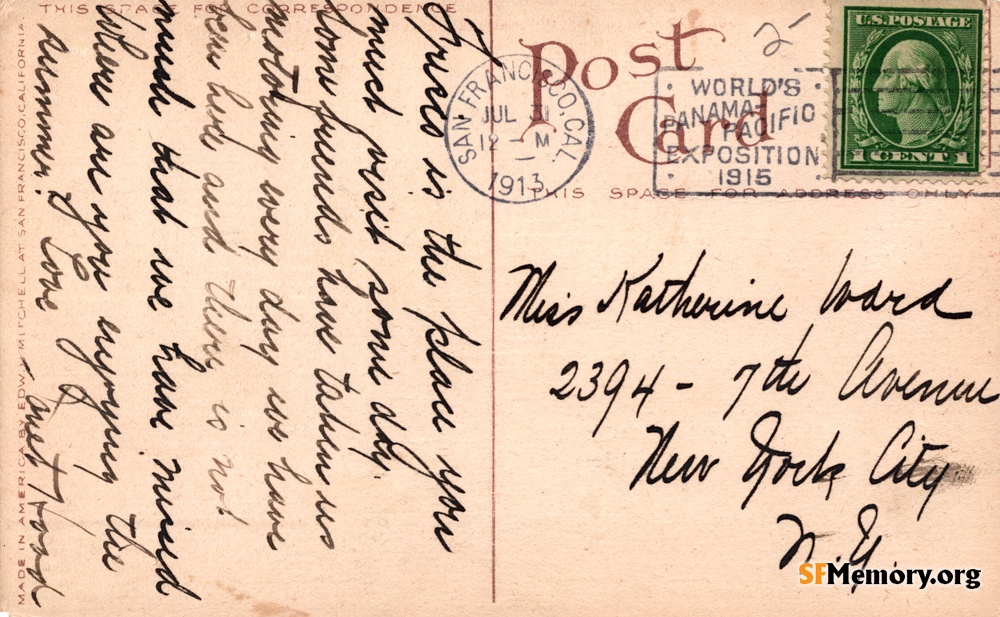 THIS SPACE FOR CORRESPONDENCE
Frisco is the place you
must visit some day.
Some friends have taken us
motoring every day we have
been here and there is not
much that we have missed
Where are you enjoying the
summer? Love
Aunt Hood
MADE IN AMERICA BY EDW. H. MITCHELL AT SAN FRANCISCO, CALIFORNIA.
Post
Card
2-
SAN FRANCISCO, CAL
JUL 31
12 - M
1913
WORLD'S
PANAMA-
PACIFIC
EXPOSITION
1915
U.S. POSTAGE
1 CENT 1
THIS SPACE FOR ADDRESS ONLY
Miss Katherine Ward
2394 - 7th Avenue
New York City
N.Y.
SFMemory.org